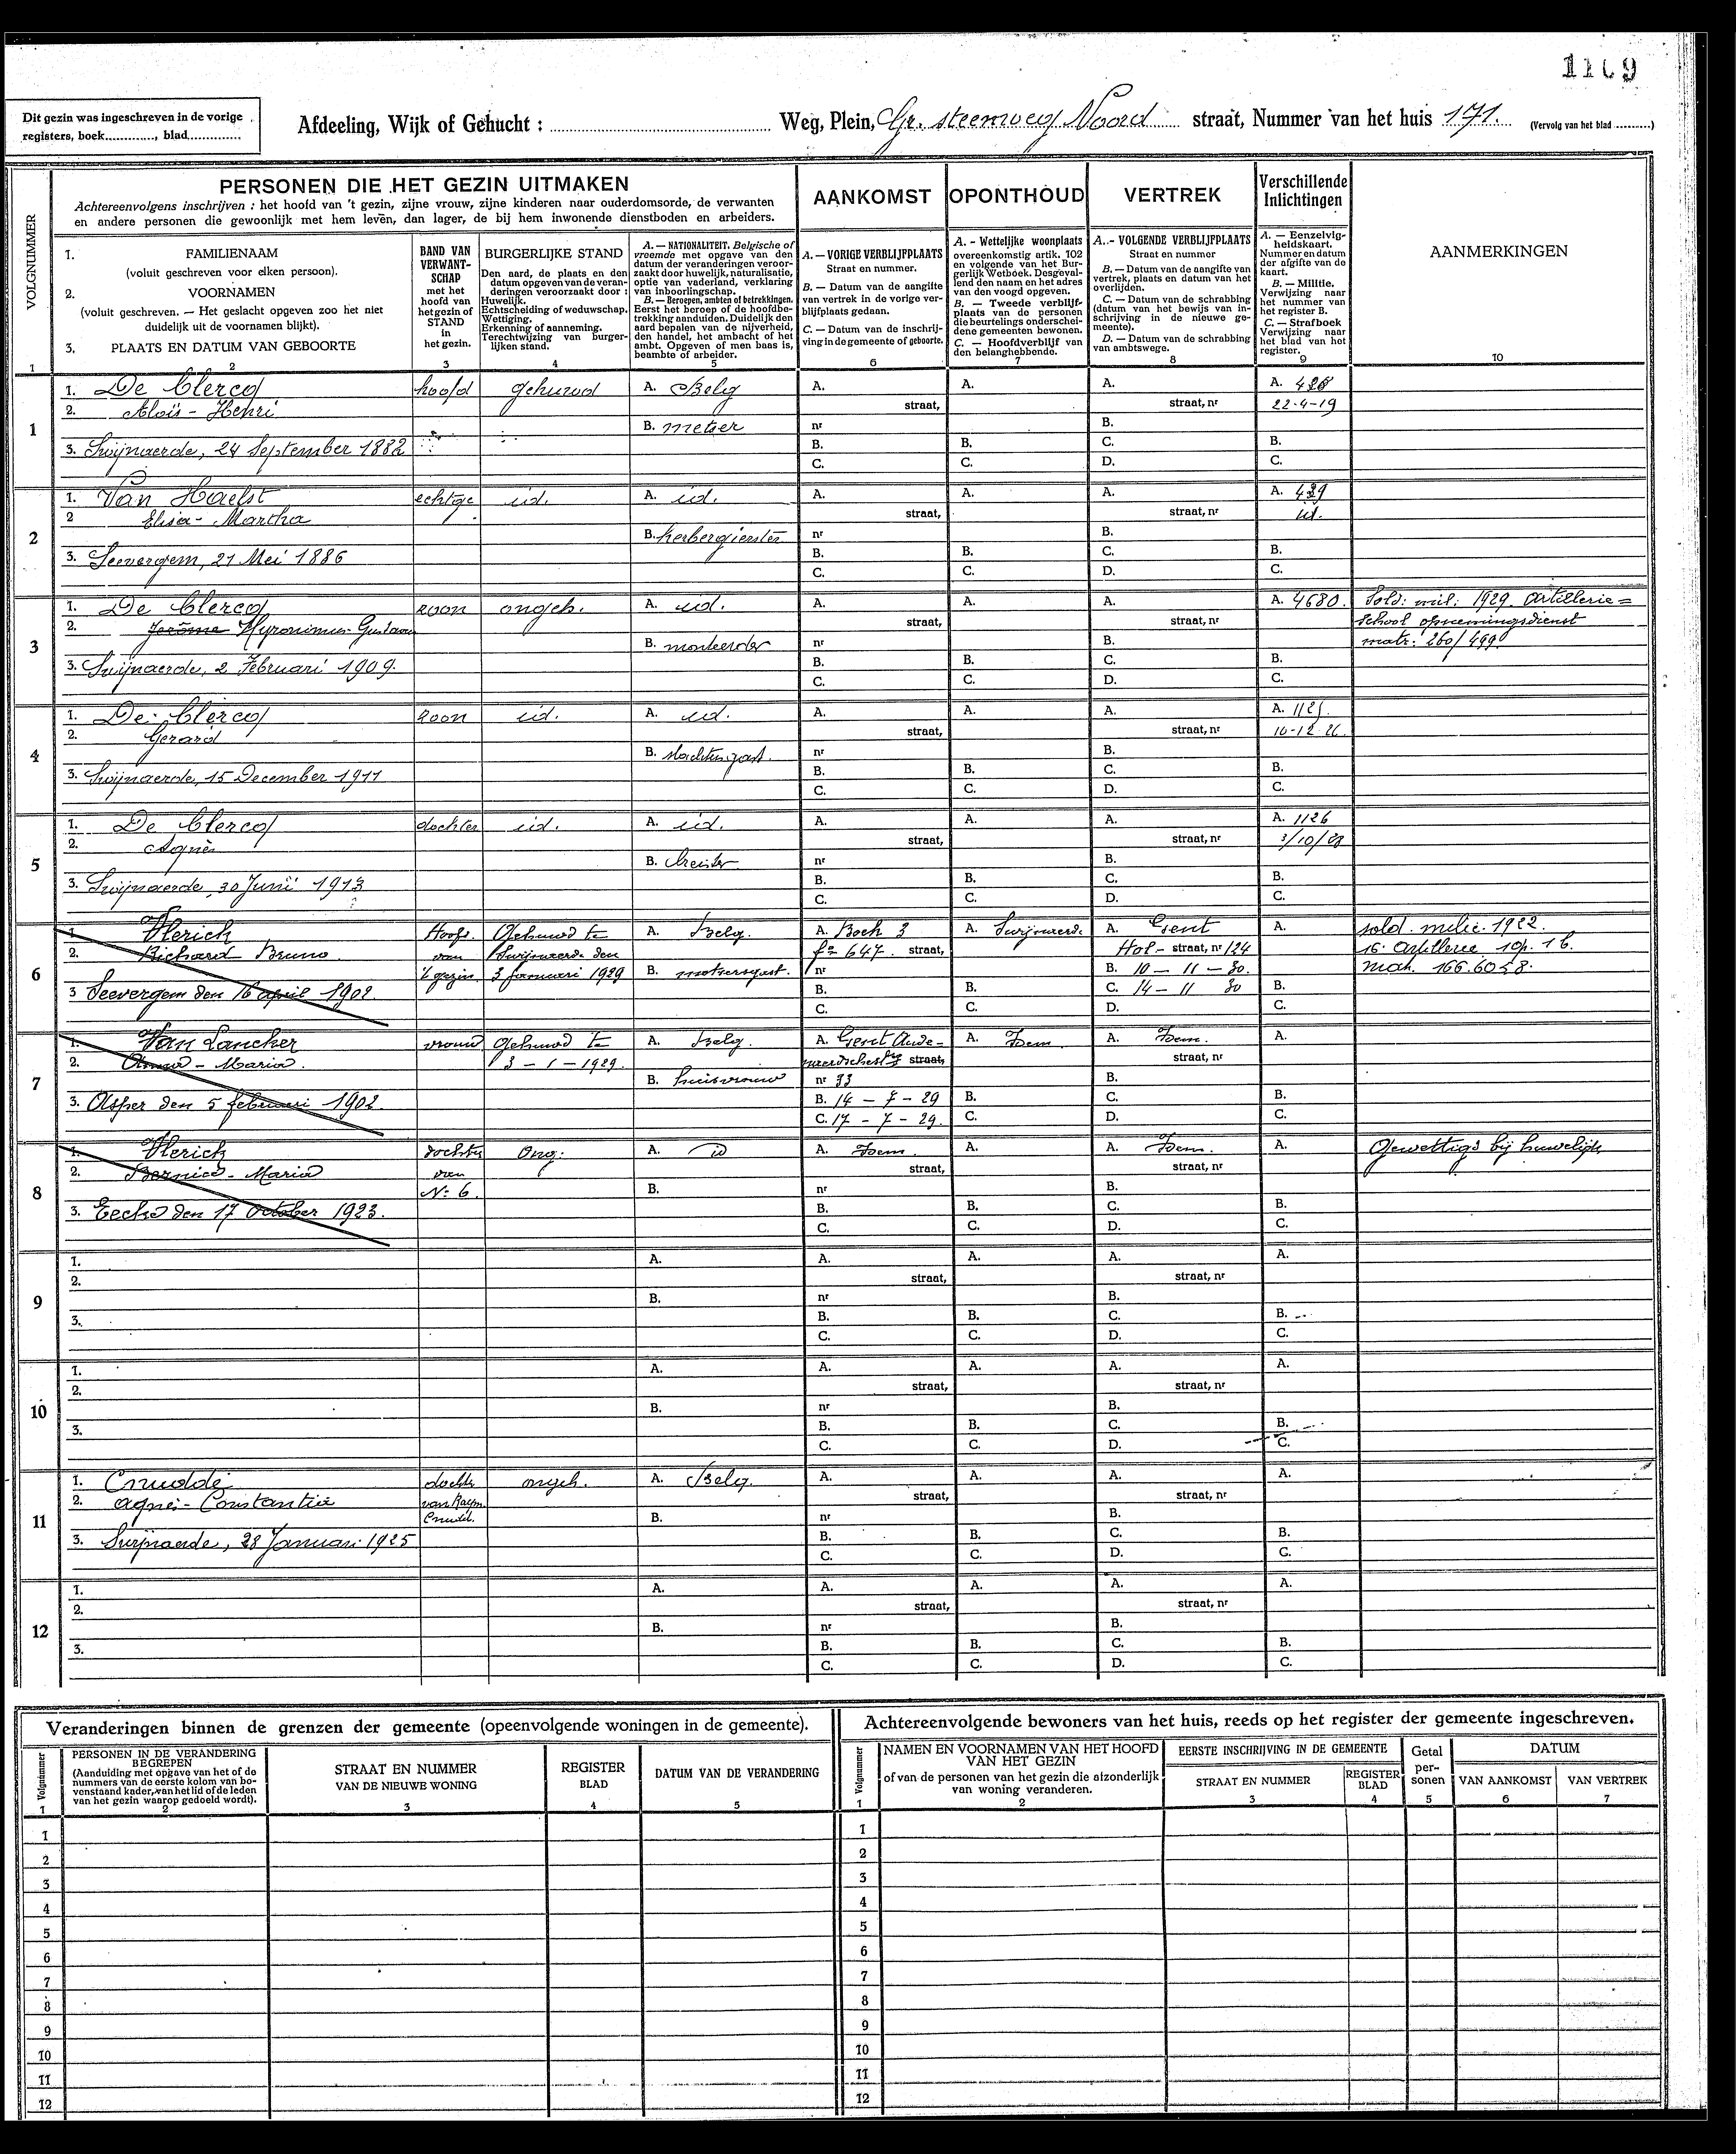 1109
Dit gezin was ingeschreven in de vorige
registers, boek............, blad.............
Afdeeling, Wijk of Gehucht : ........ Weg, Plein, Gr. steenweg Noord straat, Nummer van het huis 171. (Vervolg van het blad ..........)
VOLGNUMMER
PERSONEN DIE HET GEZIN UITMAKEN
Achtereenvolgens inschrijven : het hoofd van 't gezin, zijne vrouw, zijne kinderen naar ouderdomsorde, de verwanten
en andere personen die gewoonlijk met hem leven, dan lager, de bij hem inwonende dienstboden en arbeiders.
1. FAMILIENAAM
(voluit geschreven voor elken persoon).
2. VOORNAMEN
(voluit geschreven. — Het geslacht opgeven zoo het niet
duidelijk uit de voornamen blijkt).
3. PLAATS EN DATUM VAN GEBOORTE
BAND VAN
VERWANT-
SCHAP
met het
hoofd van
het gezin of
STAND
in
het gezin.
BURGERLIJKE STAND
Den aard, de plaats en den
datum opgeven van de veran-
deringen veroorzaakt door :
Huwelijk.
Echtscheiding of weduwschap.
Wettiging.
Erkenning of aanneming.
Terechtwijzing van burger-
lijken stand.
A. — NATIONALITEIT. Belgische of
vreemde met opgave van den
datum der veranderingen veroor-
zaakt door huwelijk, naturalisatie,
optie van vaderland, verklaring
van inboorlingschap.
B. — Beroepen, ambten of betrekkingen.
Eerst het beroep of de hoofdbe-
trekking aanduiden. Duidelijk den
aard bepalen van de nijverheid,
den handel, het ambacht of het
ambt. Opgeven of men baas is,
beambte of arbeider.
AANKOMST
A. — VORIGE VERBLIJFPLAATS
Straat en nummer.
B. — Datum van de aangifte
van vertrek in de vorige ver-
blijfplaats gedaan.
C. — Datum van de inschrij-
ving in de gemeente of geboorte.
OPONTHOUD
A. - Wettelijke woonplaats
overeenkomstig artik. 102
en volgende van het Bur-
gerlijk Wetboek. Desgeval-
lend den naam en het adres
van den voogd opgeven.
B. — Tweede verblijf-
plaats van de personen
die beurtelings onderschei-
dene gemeenten bewonen.
C. — Hoofdverblijf van
den belanghebbende.
VERTREK
A. - VOLGENDE VERBLIJFPLAATS
Straat en nummer
B. — Datum van de aangifte van
vertrek, plaats en datum van het
overlijden.
C. — Datum van de schrabbing
(datum van het bewijs van in-
schrijving in de nieuwe ge-
meente).
D. — Datum van de schrabbing
van ambtswege.
Verschillende
Inlichtingen
A. — Eenzelvig-
heidskaart.
Nummer en datum
der afgifte van de
kaart.
B. — Militie.
Verwijzing naar
het nummer van
het register B.
C. — Strafboek
Verwijzing naar
het blad van het
register.
AANMERKINGEN
1 2 3 4 5 6 7 8 9 10
1
1. De Clercq hoofd gehuwd A. Belg A. A. A. A. 428
2. Aloïs - Henri straat, straat, nr 22-4-19
B. metser nr B.
3. Swijnaerde, 24 September 1882 B. B. C. B.
C. C. D. C.
2
1. Van Haelst echtge id. A. id. A. A. A. A. 429
2 Elisa - Martha straat, straat, nr id.
B. herbergierster nr B.
3. Seevergem, 21 Mei 1886 B. B. C. B.
C. C. D. C.
3
1. De Clercq zoon ongeh. A. id. A. A. A. A. 4680. Sold. mil. 1929. Artillerie=
2. Jerôme Hyronimus-Gustaaf straat, straat, nr school opnemingsdienst
B. monteerder nr B. matr. 260/499
3. Swijnaerde, 2 Februari 1909. B. B. C. B.
C. C. D. C.
4
1. De Clercq zoon id. A. id. A. A. A. A. 1125.
2. Gerard straat, straat, nr 10-12-26.
B. slachtersgast. nr B.
3. Swijnaerde, 15 December 1911 B. B. C. B.
C. C. D. C.
5
1. De Clercq dochter id. A. id. A. A. A. A. 1126
2. Agnès straat, straat, nr
B. nr B.
3. Swijnaerde, 30 Juni 1913 B. B. C. B.
C. C. D. C.
6
1. Vlerick Hoofd. Gehuwd te A. Belg. A. Boek 3 A. Swijnaerde A. Gent A. sold. milic. 1922.
2. Richard Bruno van Swijnaerde den f° 647. straat, Hol- straat, nr 124 16. Artillerie 1gr. 1b.
't gezin 3 Januari 1929 B. metsersgast. nr B. 10 - 11 - 30. Matr. 166.6058.
3 Seevergem den 16 april 1902. B. B. C. 14 - 11 30 B.
C. C. D. C.
7
1. Van Lancker vrouw gehuwd te A. Belg. A. Gent Aude- A. Idem A. Idem. A.
2. Anna - Maria. 3 - 1 - 1929. naardschestg straat, straat, nr
B. huisvrouw nr 33 B.
3. Asper den 5 februari 1902. B. 14 - 7 - 29 B. C. B.
C. 17 - 7 - 29. C. D. C.
8
1. Vlerick dochter Ong. A. id A. Idem. A. A. Idem. A. Gewettigd bij huwelijk
2. Bernice - Maria van straat, straat, nr
N: 6. B. nr B.
3. Eecke den 17 October 1923. B. B. C. B.
C. C. D. C.
9
1. A. A. A. A. A.
2. straat, straat, nr
B. nr B.
3. B. B. C. B.
C. C. D. C.
10
1. A. A. A. A. A.
2. straat, straat, nr
B. nr B.
3. B. B. C. B.
C. C. D. C.
11
1. Crudde dochter ongeh. A. Belg. A. A. A. A.
2. Agnes - Constantia van Raym. straat, straat, nr
B. nr B.
3. Swijnaerde, 28 Januari 1925 B. B. C. B.
C. C. D. C.
12
1. A. A. A. A. A.
2. straat, straat, nr
B. nr B.
3. B. B. C. B.
C. C. D. C.
Veranderingen binnen de grenzen der gemeente (opeenvolgende woningen in de gemeente).
Volgnummer
PERSONEN IN DE VERANDERING
BEGREPEN
(Aanduiding met opgave van het of de
nummers van de eerste kolom van bo-
venstaand kader, van het lid of de leden
van het gezin waarop gedoeld wordt).
STRAAT EN NUMMER
VAN DE NIEUWE WONING
REGISTER
BLAD
DATUM VAN DE VERANDERING
1 2 3 4 5
1
2
3
4
5
6
7
8
9
10
11
12
Achtereenvolgende bewoners van het huis, reeds op het register der gemeente ingeschreven.
Volgnummer
NAMEN EN VOORNAMEN VAN HET HOOFD
VAN HET GEZIN
of van de personen van het gezin die afzonderlijk
van woning veranderen.
EERSTE INSCHRIJVING IN DE GEMEENTE
STRAAT EN NUMMER
REGISTER
BLAD
Getal
per-
sonen
DATUM
VAN AANKOMST VAN VERTREK
1 2 3 4 5 6 7
1
2
3
4
5
6
7
8
9
10
11
12